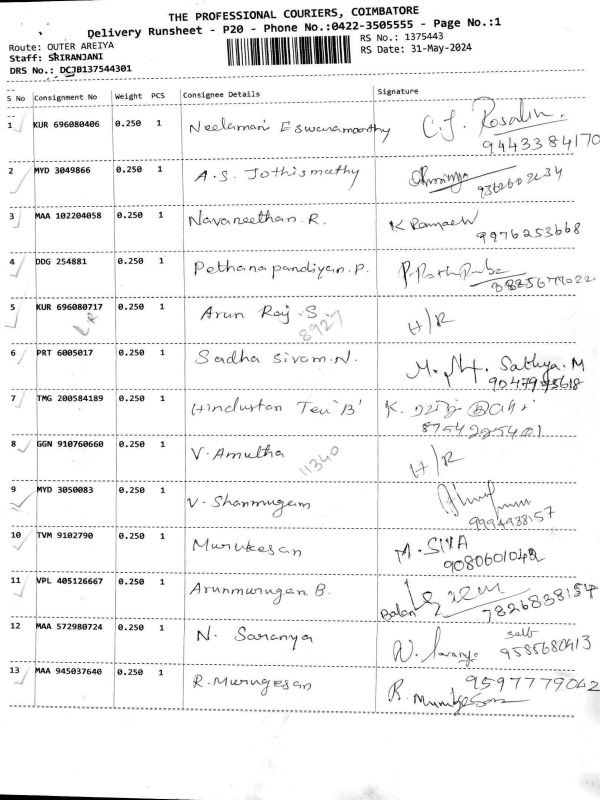 THE PROFESSIONAL COURIERS, COIMBATORE
Delivery Runsheet - P20 - Phone No.:0422-3505555 - Page No.:1
Route: OUTER AREIYA
RS No.: 1375443
Staff: SRIRANJANI
RS Date: 31-May-2024
DRS No.: DCJB137544301
S No Consignment No Weight PCS Consignee Details Signature
1 KUR 696080406 0.250 1 Neelamani Eswaramoorthy C.J. Rosalin.
9443384170
2 MYD 3049866 0.250 1 A.S. Jothismathy
3 MAA 102204058 0.250 1 Navaneethan.R. K
9976253668
4 DDG 254881 0.250 1 Pethanapandiyan.P.
5 KUR 696080717 0.250 1 Arun Raj.S. H/R
8927
6 PRT 6005017 0.250 1 Sadha Sivam.N. Sathya.M
7 TMG 200584189 0.250 1 Hindustan Tex 'B' K.
8754225401
8 GGN 910760660 0.250 1 V.Amutha H/R
11340
9 MYD 3050083 0.250 1 V.Shanmugam
9994938157
10 TVM 9102790 0.250 1 Murukesan A.SIVA
9080601042
11 VPL 405126667 0.250 1 Arunmurugan B.
Balan 7826838154
12 MAA 572980724 0.250 1 N. Saranya N. Saranya self
9585680413
13 MAA 945037640 0.250 1 R.Murugesan 9597779042
R. Murugesan